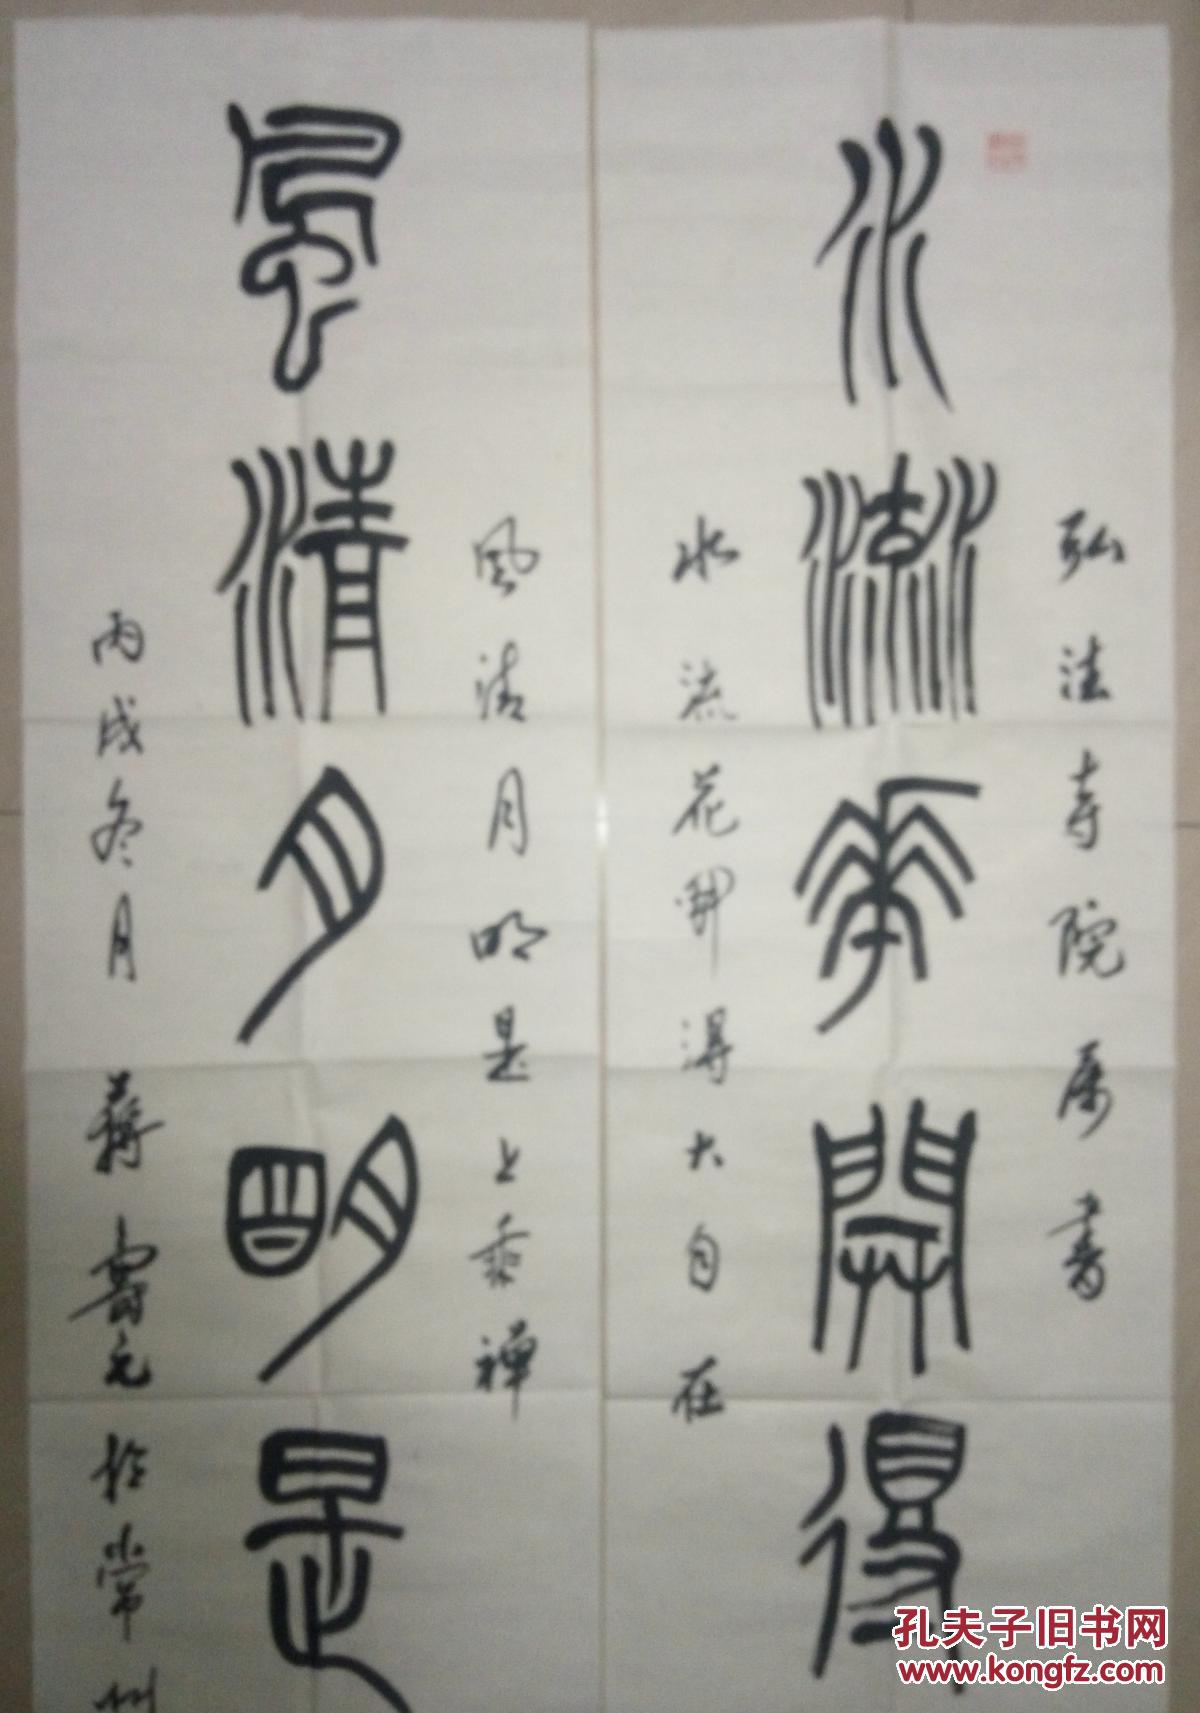 弘法寺院属书
水流华开得
水流花开得大自在
风清月明是上乘禅
風清月明是
丙戌冬月 蒋寿元於常州
孔夫子旧书网
www.kongfz.com